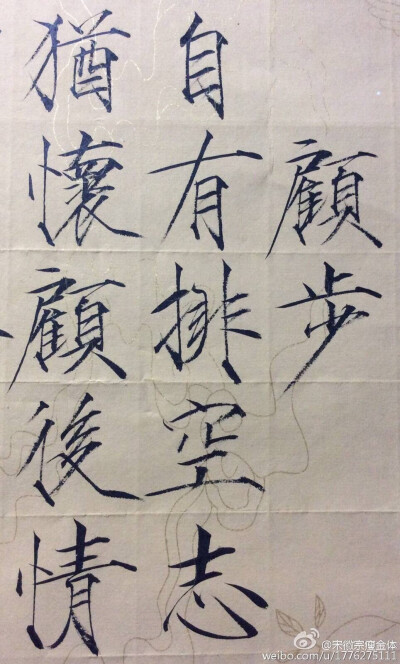 顧步
自有排空志
猶懷顧後情
@宋徽宗瘦金体
weibo.com/u/1776275111